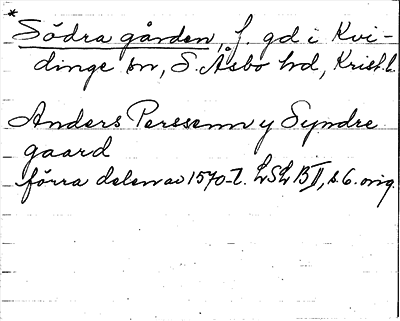 * Södra gården, f. gd i Kvi-
dinge sn, S. Åsbo hd, Krist. l.
Anders Perssenn y Syndre
gaard
förra delen av 1570-t. LSL B II, s. 6. orig.